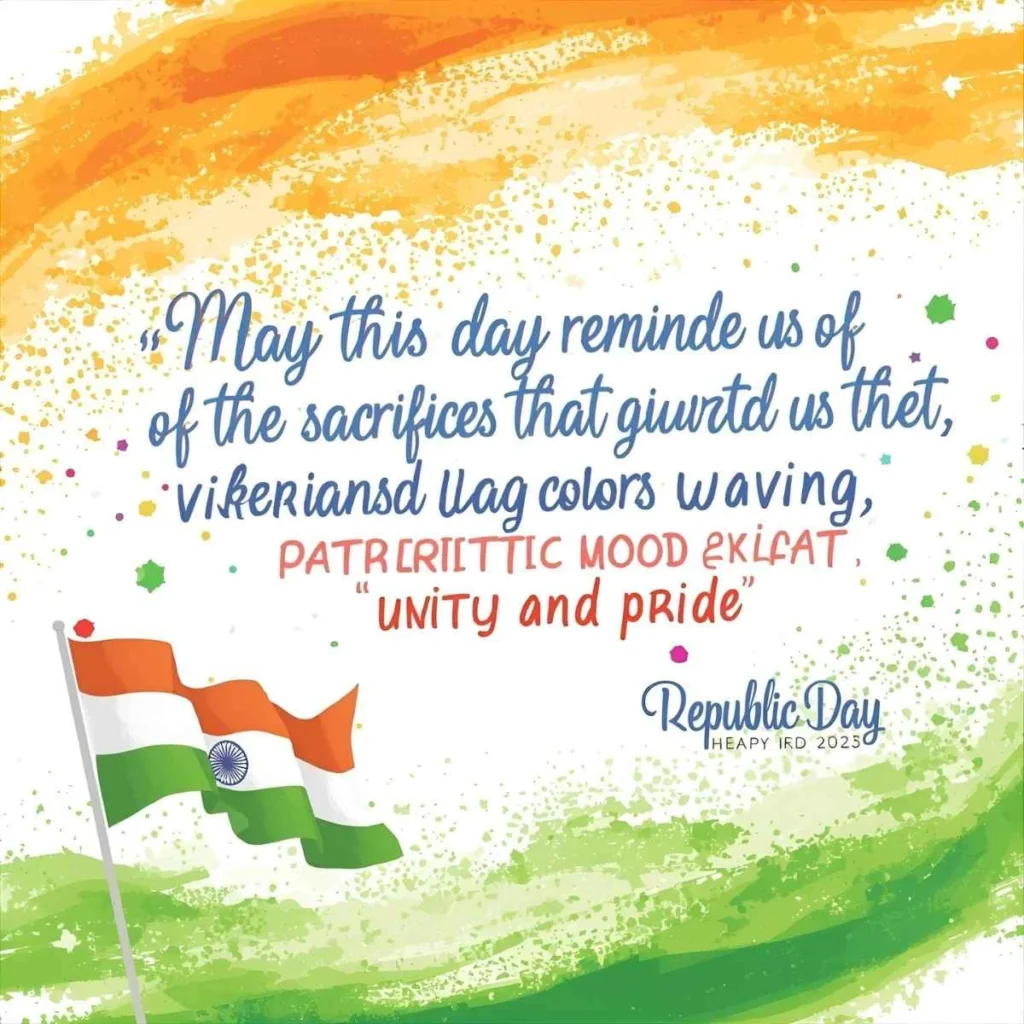 "May this day reminde us of
of the sacrifices that giuvrtd us thet,
vikeriansd llag colors waving,
PATR MOOD
"UNITY and pRide"
Republic Day
HEAPY IRD 2025